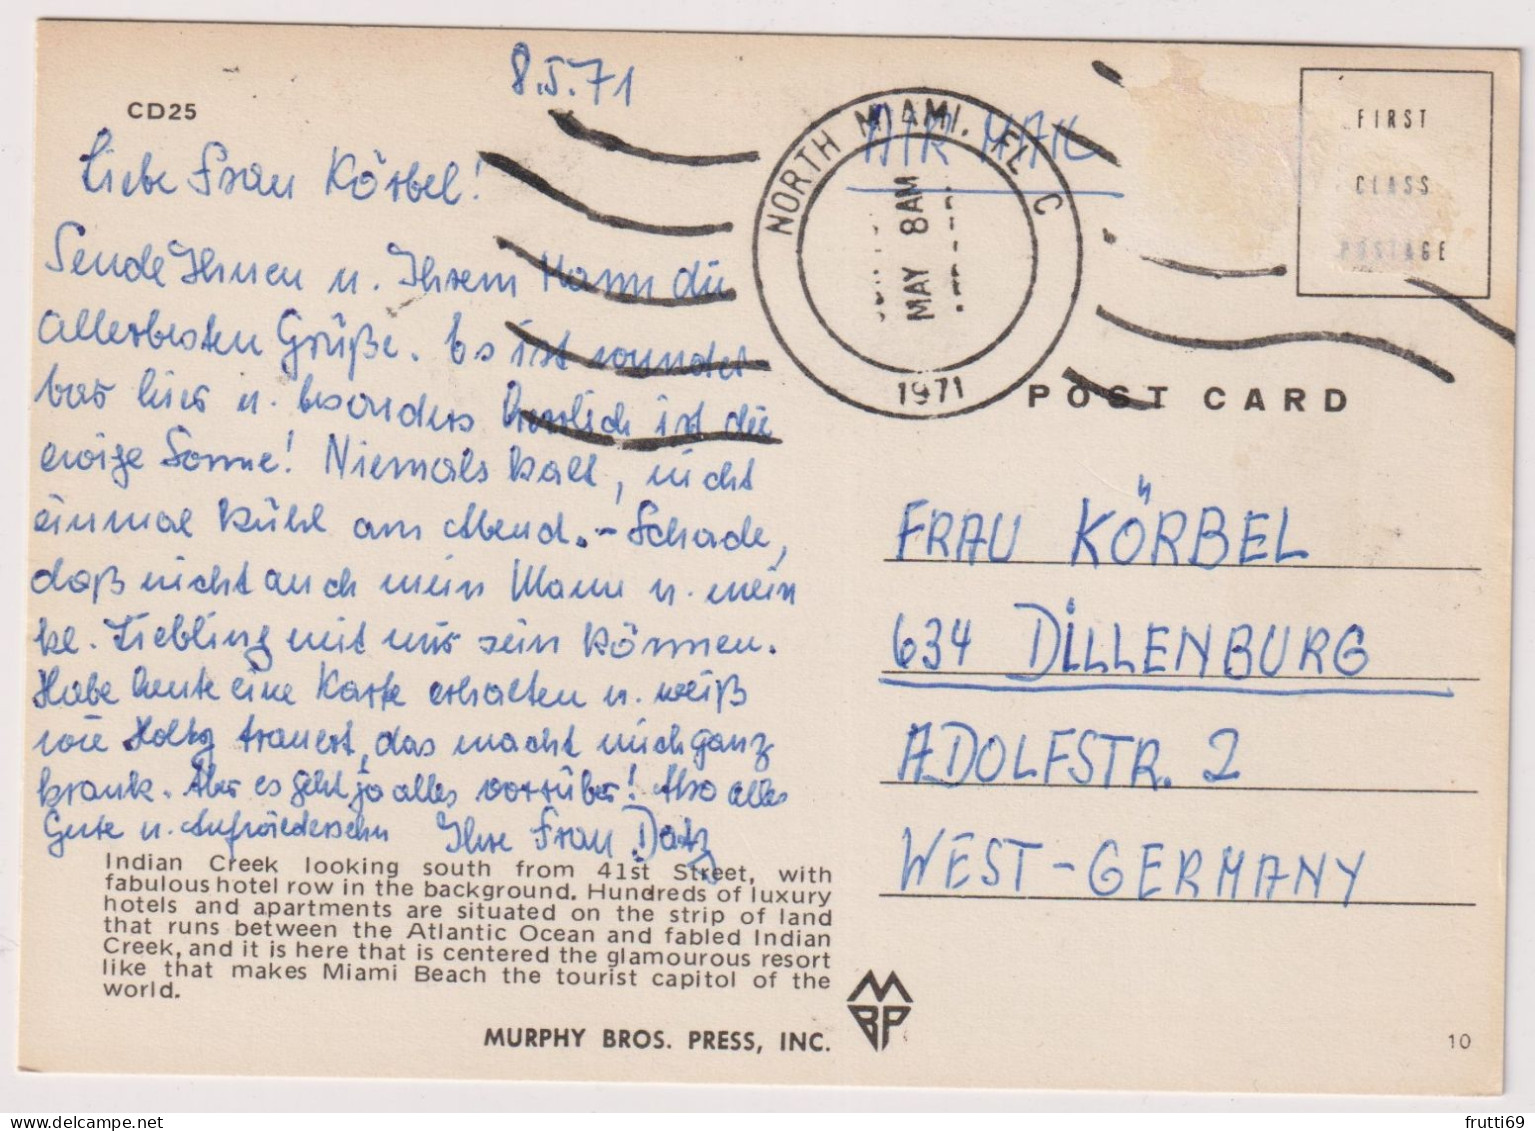 8.5.71
CD25
Liebe Frau Körbel!
Sende Ihnen u. Ihrem Mann die
allerbesten Grüße. Es ist wunder
bar hier u. besonders herrlich ist die
ewige Sonne! Niemals kalt, nicht
einmal kühl am Abend. - Schade,
daß nicht auch mein Mann u. mein
kl. Liebling mit mir sein können.
Habe heute eine Karte erhalten u. weiß
wie trauert, das macht mich ganz
krank. Aber es geht ja alles vorrüber! Also alles
Gute u. Aufwiedersehn Ihre Frau Datz
Indian Creek looking south from 41st Street, with
fabulous hotel row in the background. Hundreds of luxury
hotels and apartments are situated on the strip of land
that runs between the Atlantic Ocean and fabled Indian
Creek, and it is here that is centered the glamourous resort
like that makes Miami Beach the tourist capitol of the
world.
MURPHY BROS. PRESS, INC.
MBP
AIR MAIL
NORTH MIAMI, FL C
MAY 8AM
1971
FIRST
CLASS
POSTAGE
POST CARD
FRAU KÖRBEL
634 DILLENBURG
ADOLFSTR. 2
WEST-GERMANY
10
frutti69